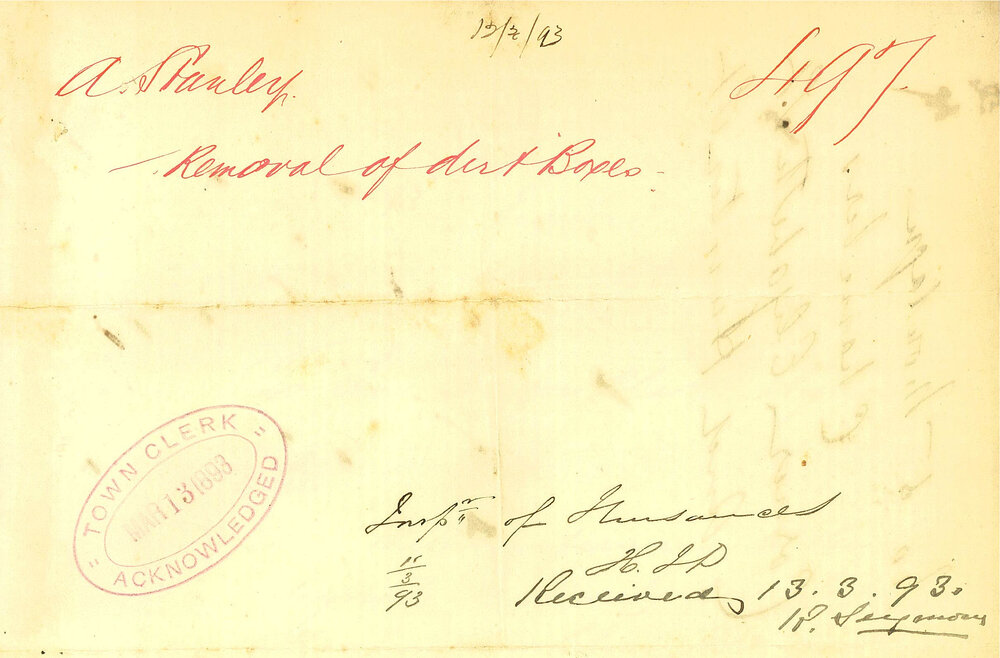 13/3/93
A. Stanley. 497.
— Removal of dirt Boxes.
TOWN CLERK
MAR 13 1893
ACKNOWLEDGED
Inspr of Nuisances
H. J. D
11/3/93
Received 13.3.93.
R. Seymour